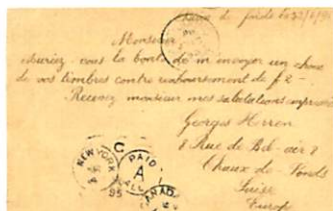 Chaux de fonds le 22/6/95
Monsieur
Auriez vous la bonté de m'envoyer un choix
de vos timbres contre remboursement de f 2 -
Recevez monsieur mes salutations
Georges Herren
8 Rue de Bel-air 8
Chaux-de-Fonds
Suisse
Europe
NEW YORK
95
PAID
A
ALL
C